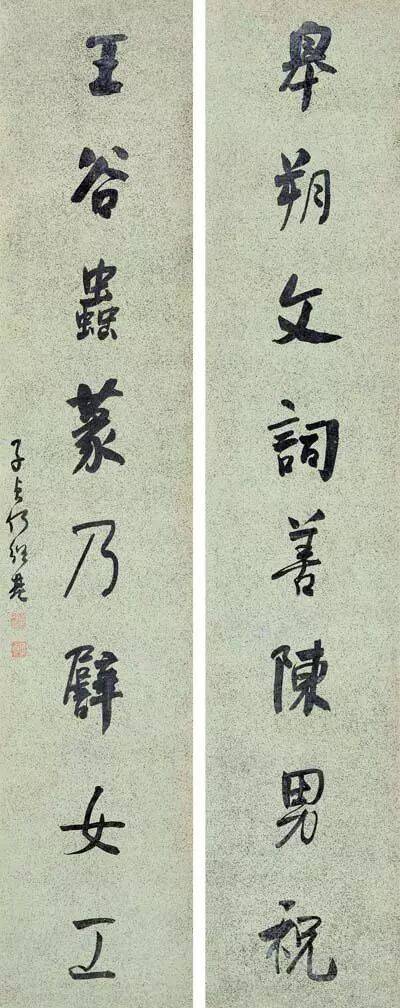 皋朔文詞善陳男祝
王谷蟲篆乃譬女工
子貞何紹基